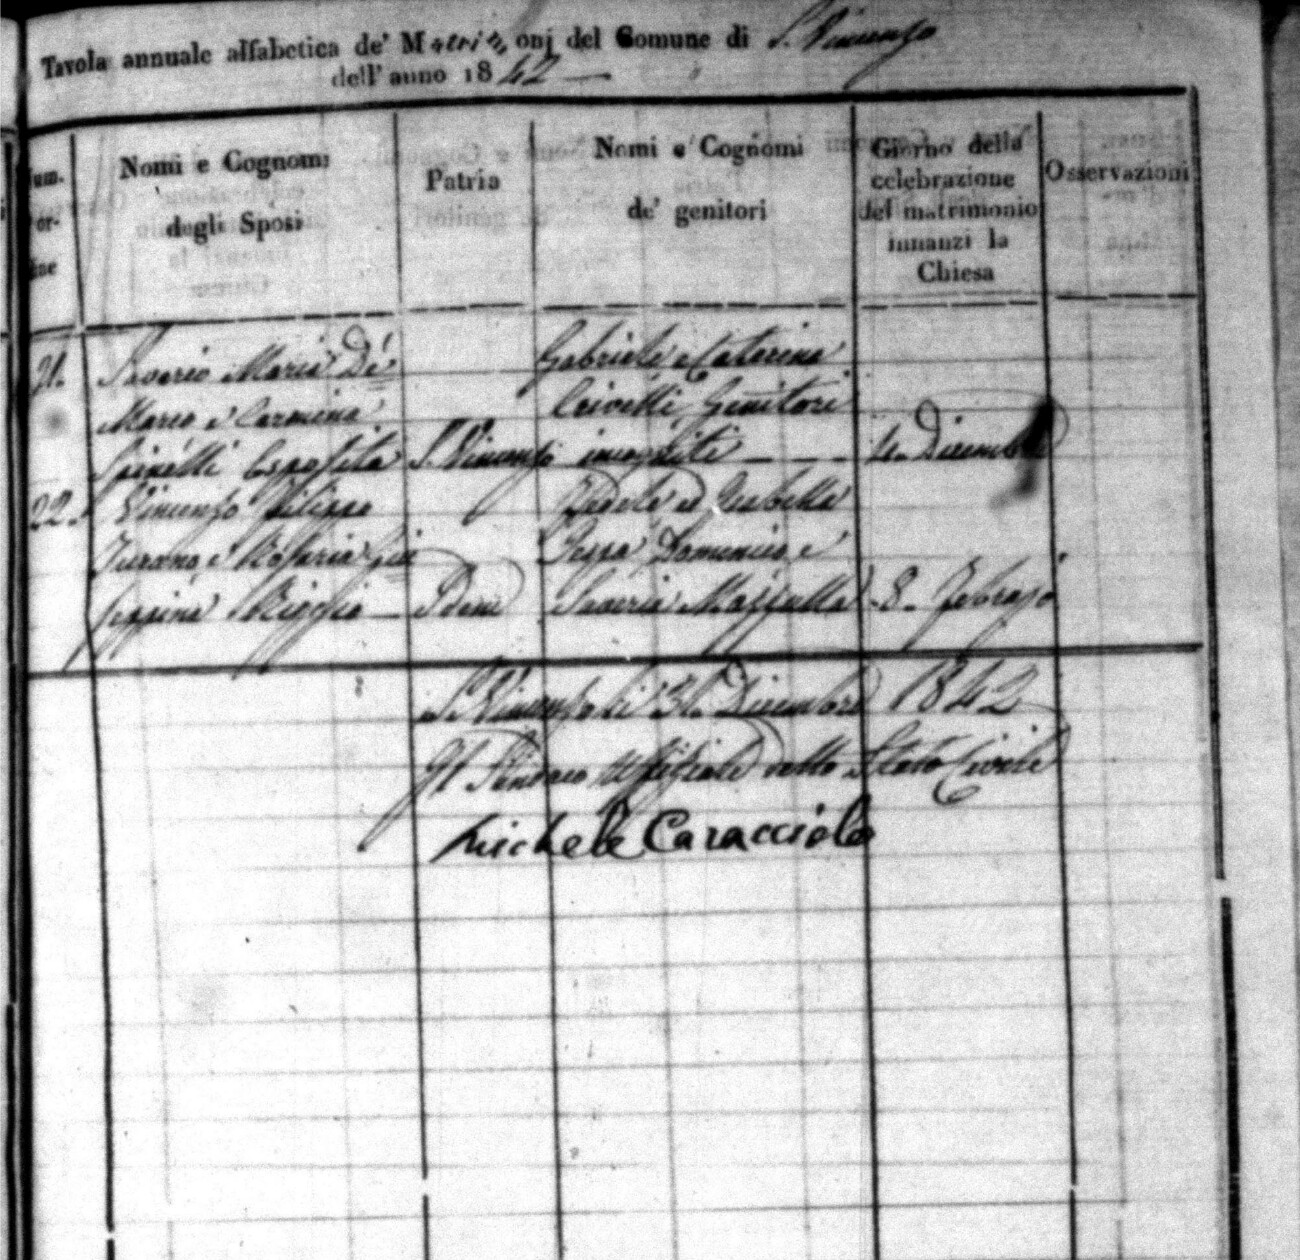 Tavola annuale alfabetica de' Matrimonj del Comune di S. Vincenzo
dell' anno 1842
Num.
d'or-
dine
Nomi e Cognomi
degli Sposi
Patria
Nomi e Cognomi
de' genitori
Giorno della
celebrazione
del matrimonio
innanzi la
Chiesa
Osservazioni
21. Saverio Maria De Gabriele e Caterina
Marco e Carmina Crivelli Genitori
Spinelli Esposita S. Vincenzo incogniti 4. Dicembre
22. Vincenzo Filippo Fedele ed Isabella
Turano e Rosaria Giu Domenico e
seppina Idem Saveria Mazzulla 8. Febrajo
S. Vincenzo li 31. Dicembre 1842
Il Sindaco Uffiziale dello Stato Civile
Michele Caracciolo